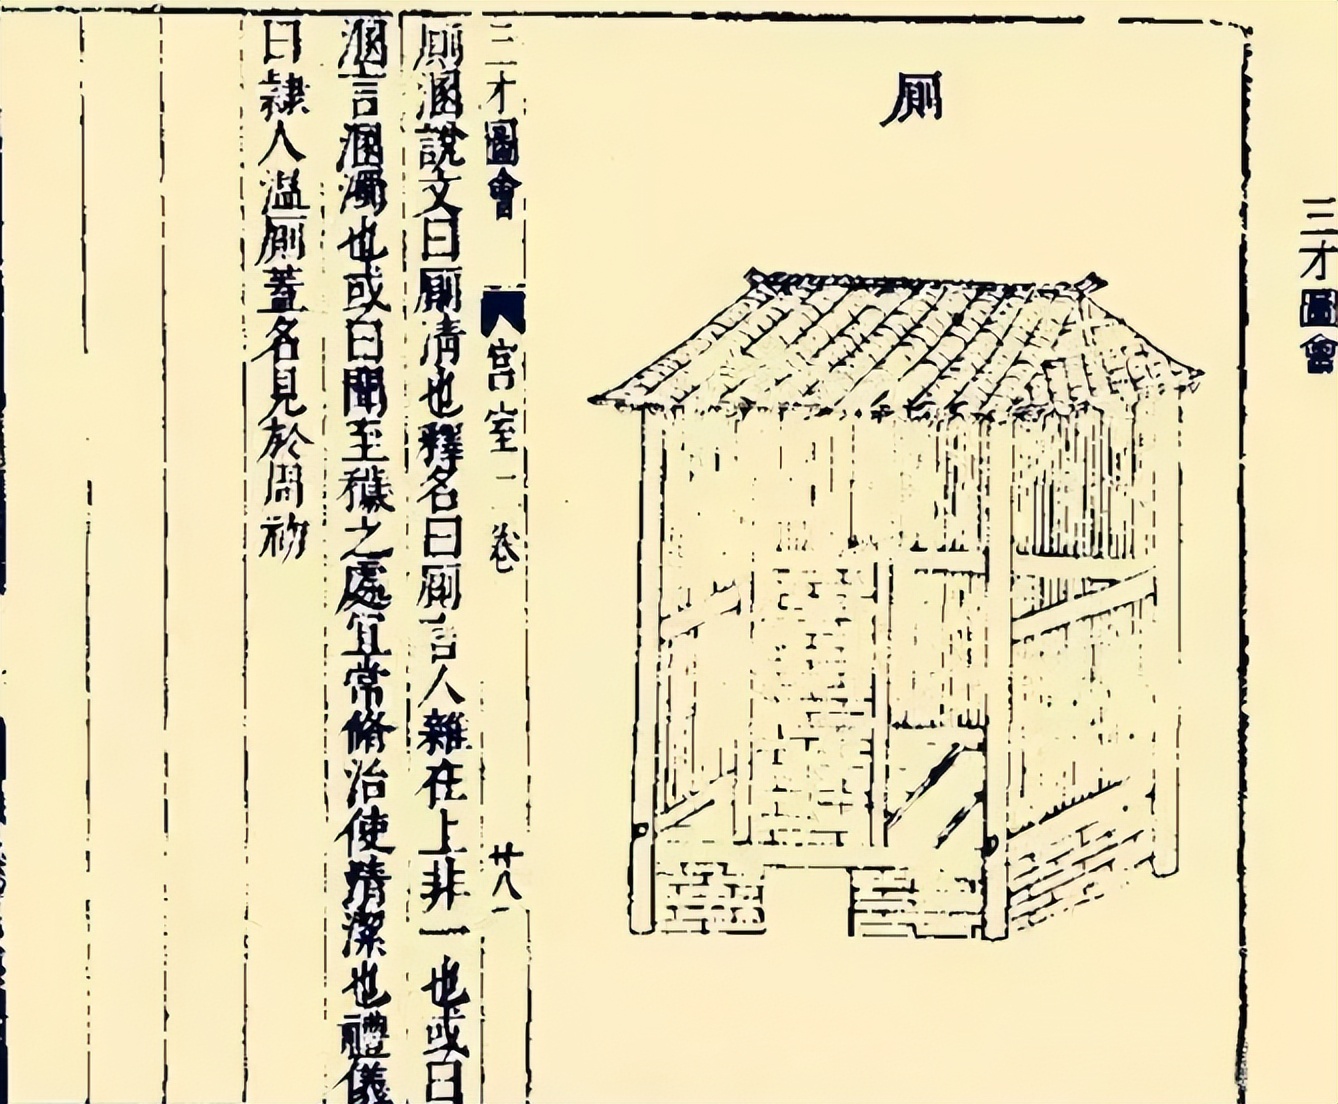 三才圖會
厠
三才圖會
宮室一卷
廿八
厠溷說文曰厠清也釋名曰厠言人雜在上非一也或曰
溷言溷濁也或曰圊至穢之處宜常脩治使清潔也禮儀
曰隸人溫厠蓋名見於周初